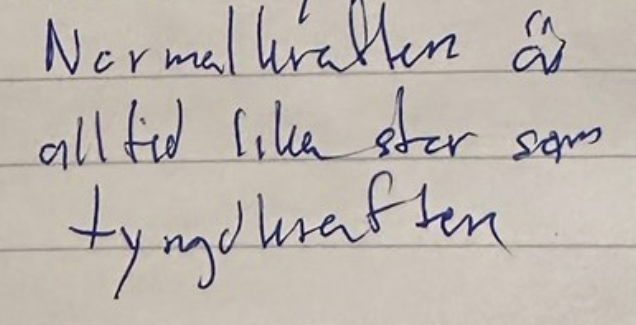 Normalkraften är
alltid lika stor som
tyngdkraften